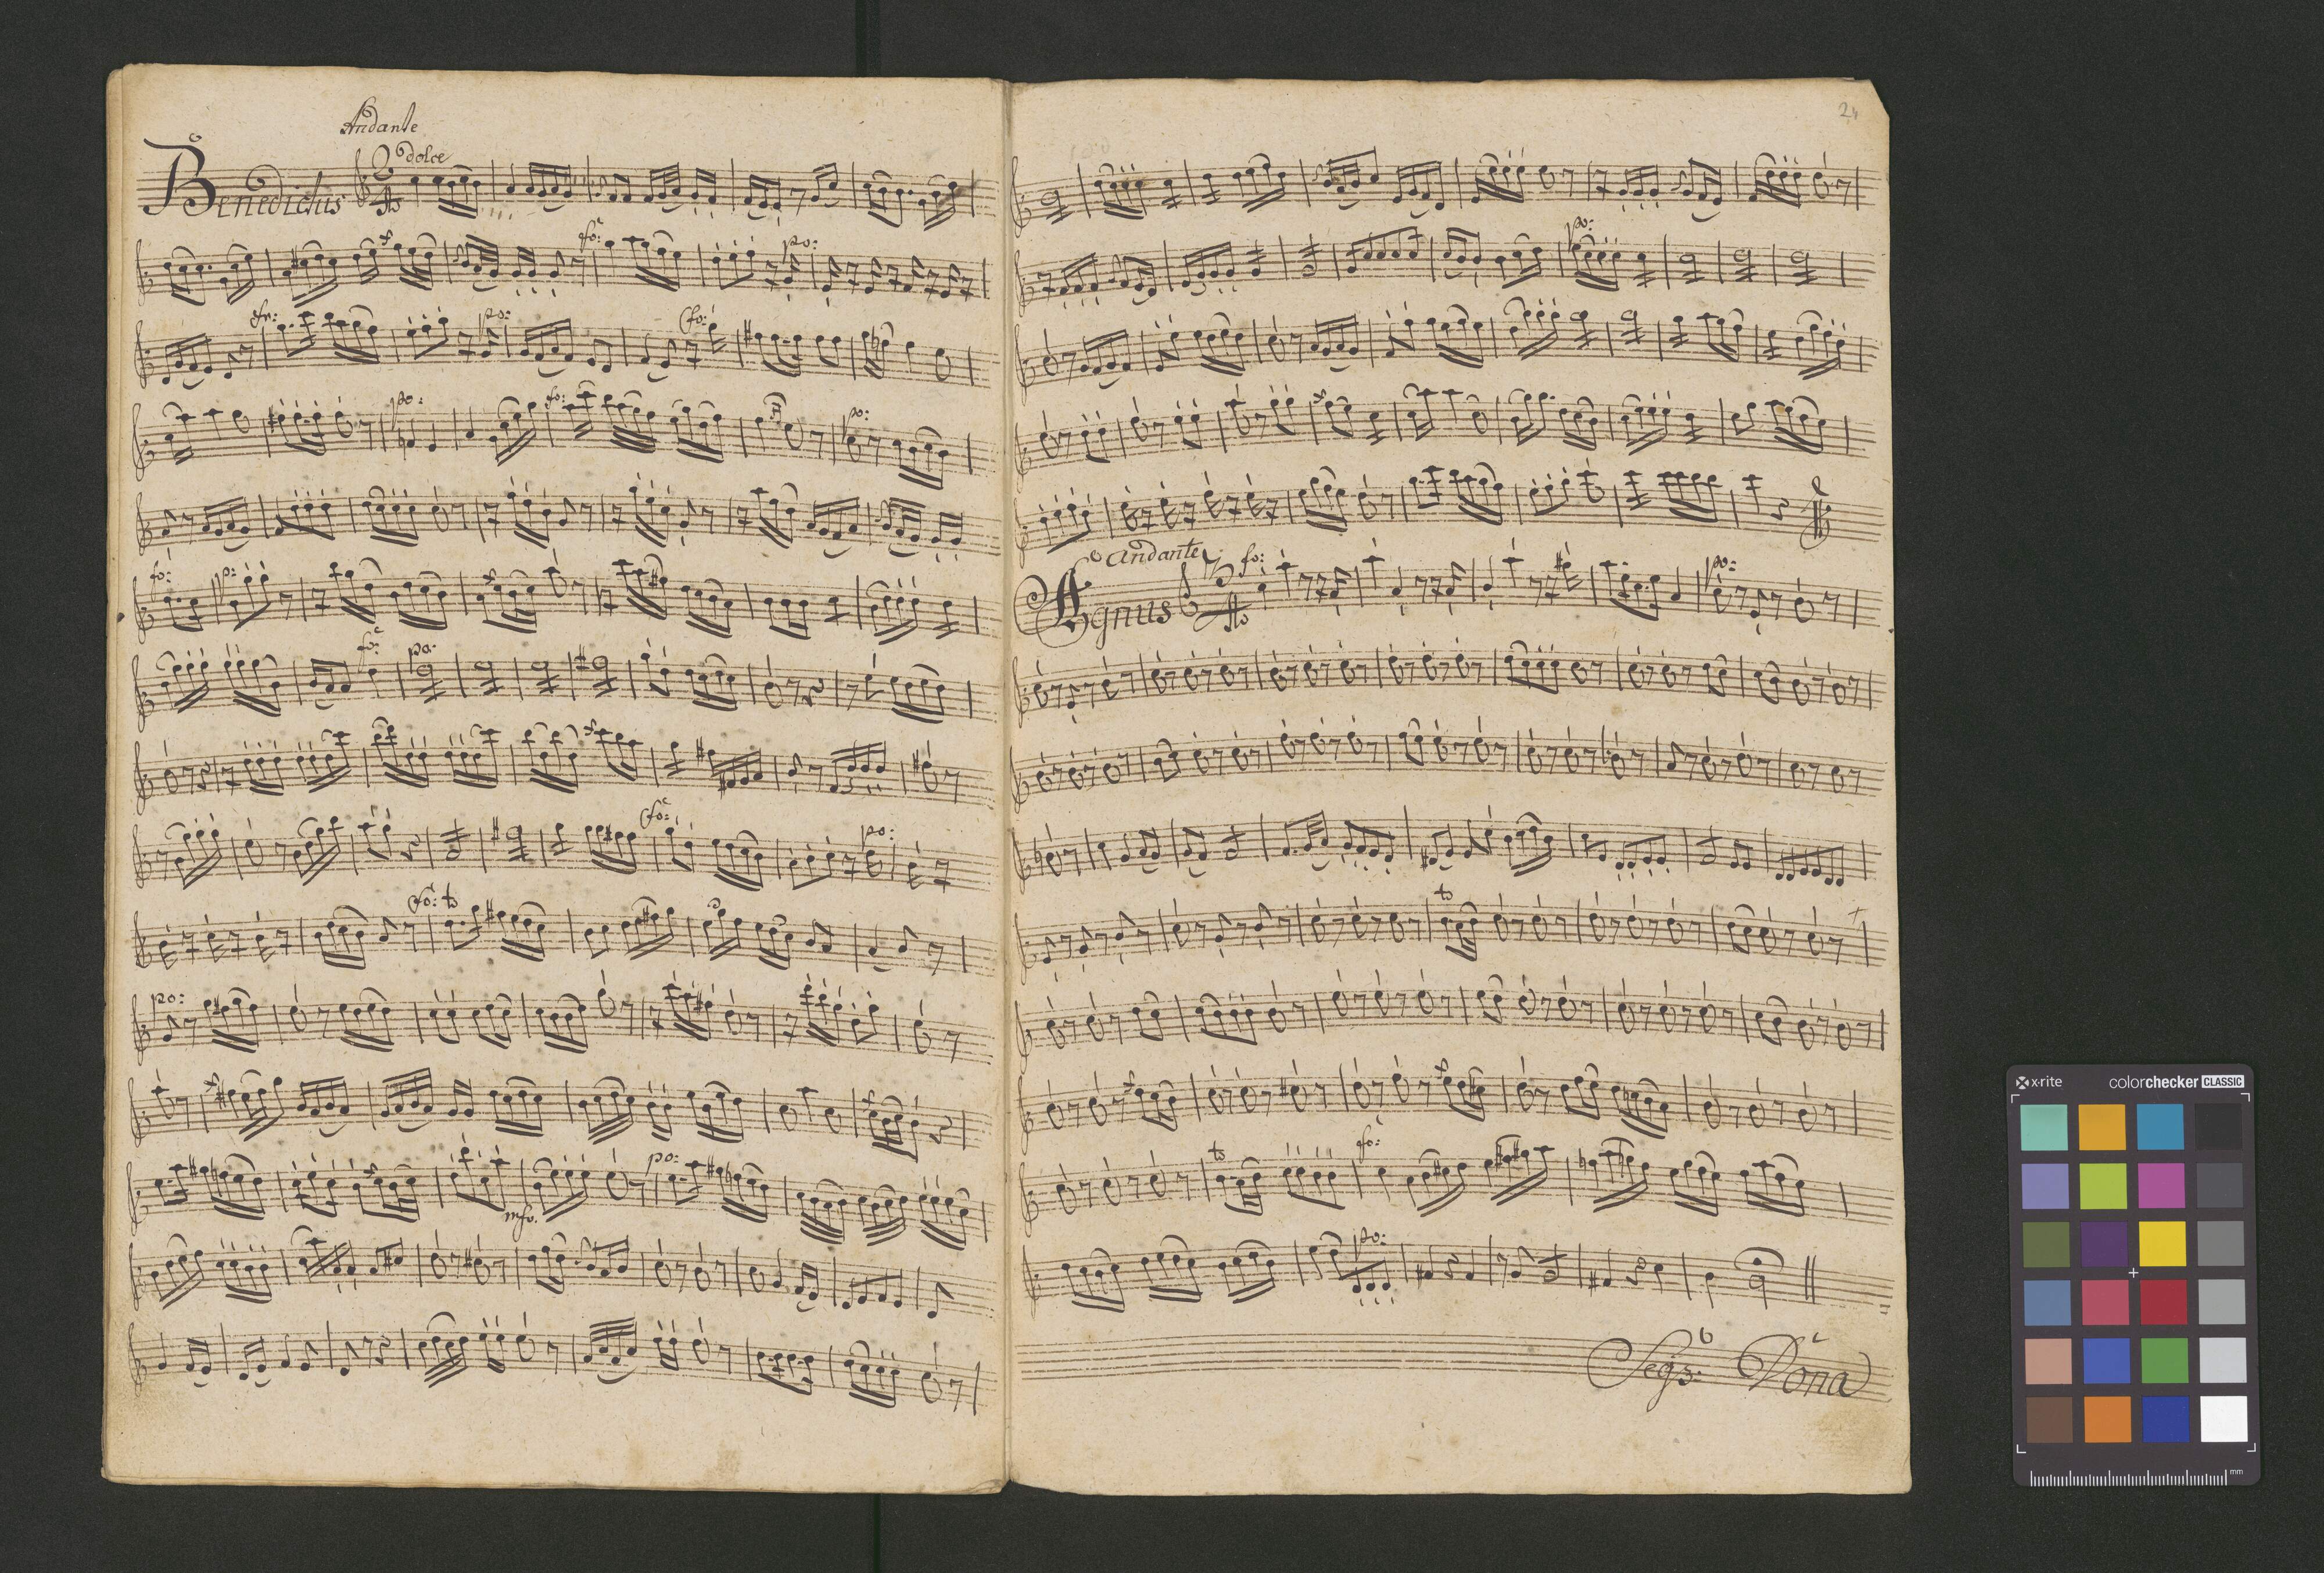 Andante
Benedictus
dolce
fo:
po:
fo:
po:
fo:
po:
fo:
po:
fo:
p:
fo:
po:
fo:
po:
fo:
po:
po:
mfo.
24
po:
Andante
Agnus
3
fo:
po:
fo:
po:
Dona
x-rite
colorchecker CLASSIC
mm